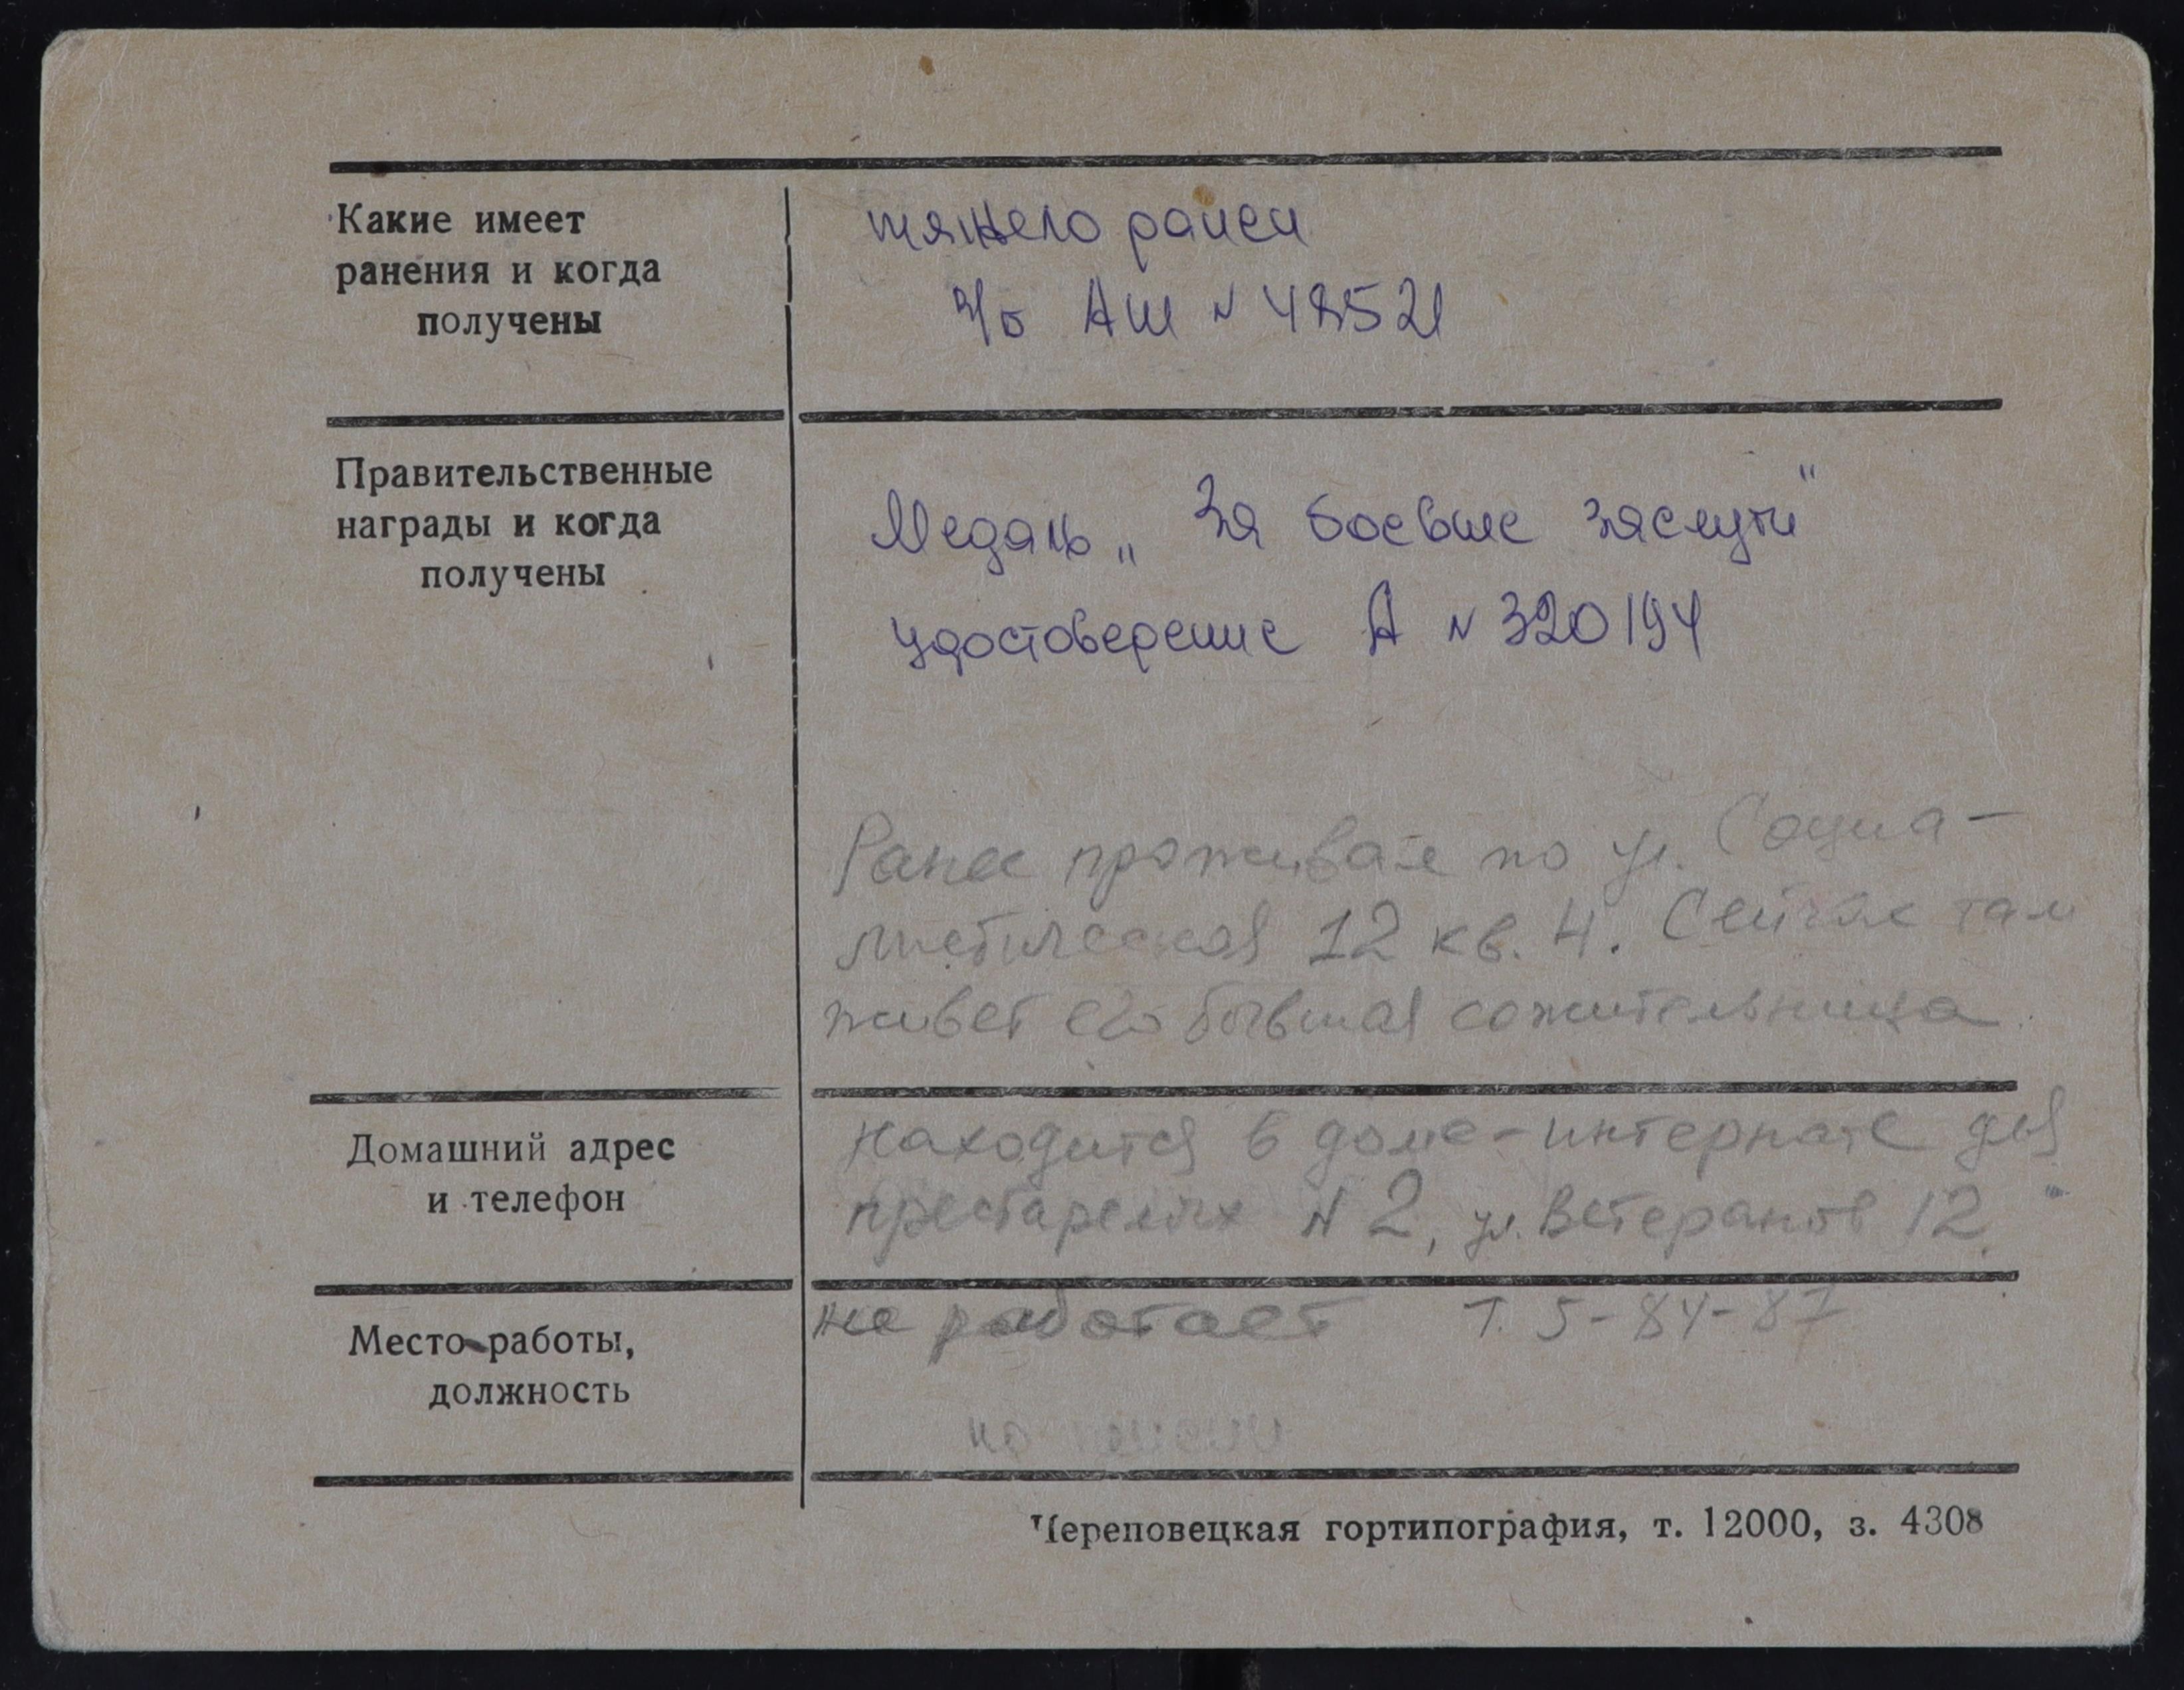 Какие имеет
ранения и когда
получены
тяжело ранен
ч/б АШ № 48521
Правительственные
награды и когда
получены
Медаль „За боевые заслуги"
удостоверение А № 320194
Ранее проживал по ул. Социа-
листическая 12 кв. 4. Сейчас там
живет его бывшая сожительница.
Домашний адрес
и телефон
Находится в доме-интернате для
престарелых № 2, ул. Ветеранов 12.
Место работы,
должность
не работает Т. 5-84-87
Череповецкая гортипография, т. 12000, з. 4308